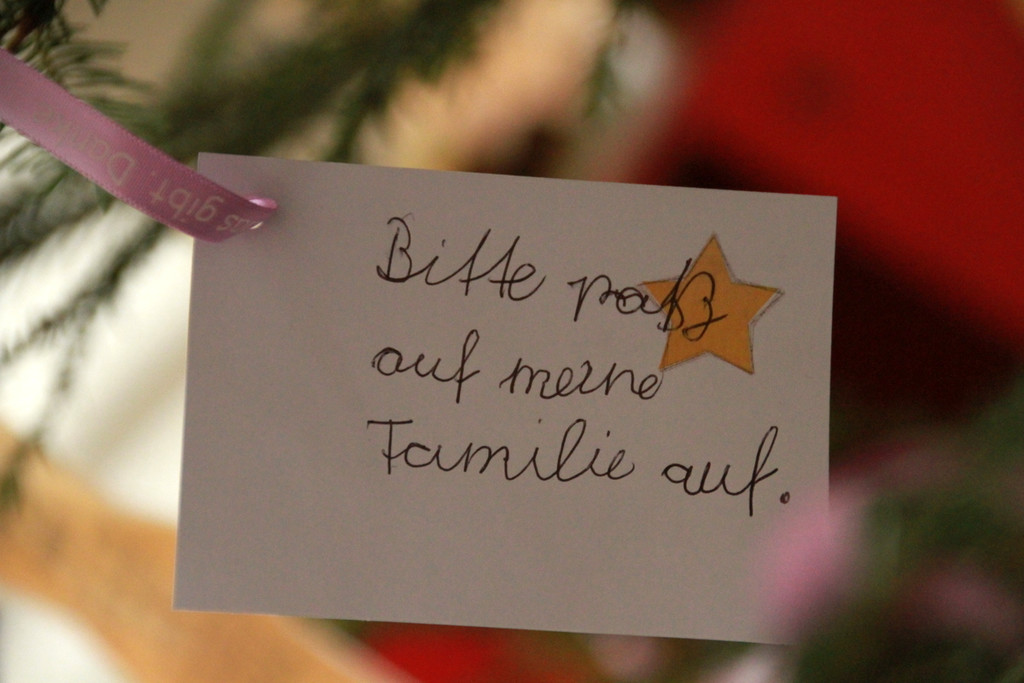 Bitte paß
auf meine
Familie auf.
gibt.